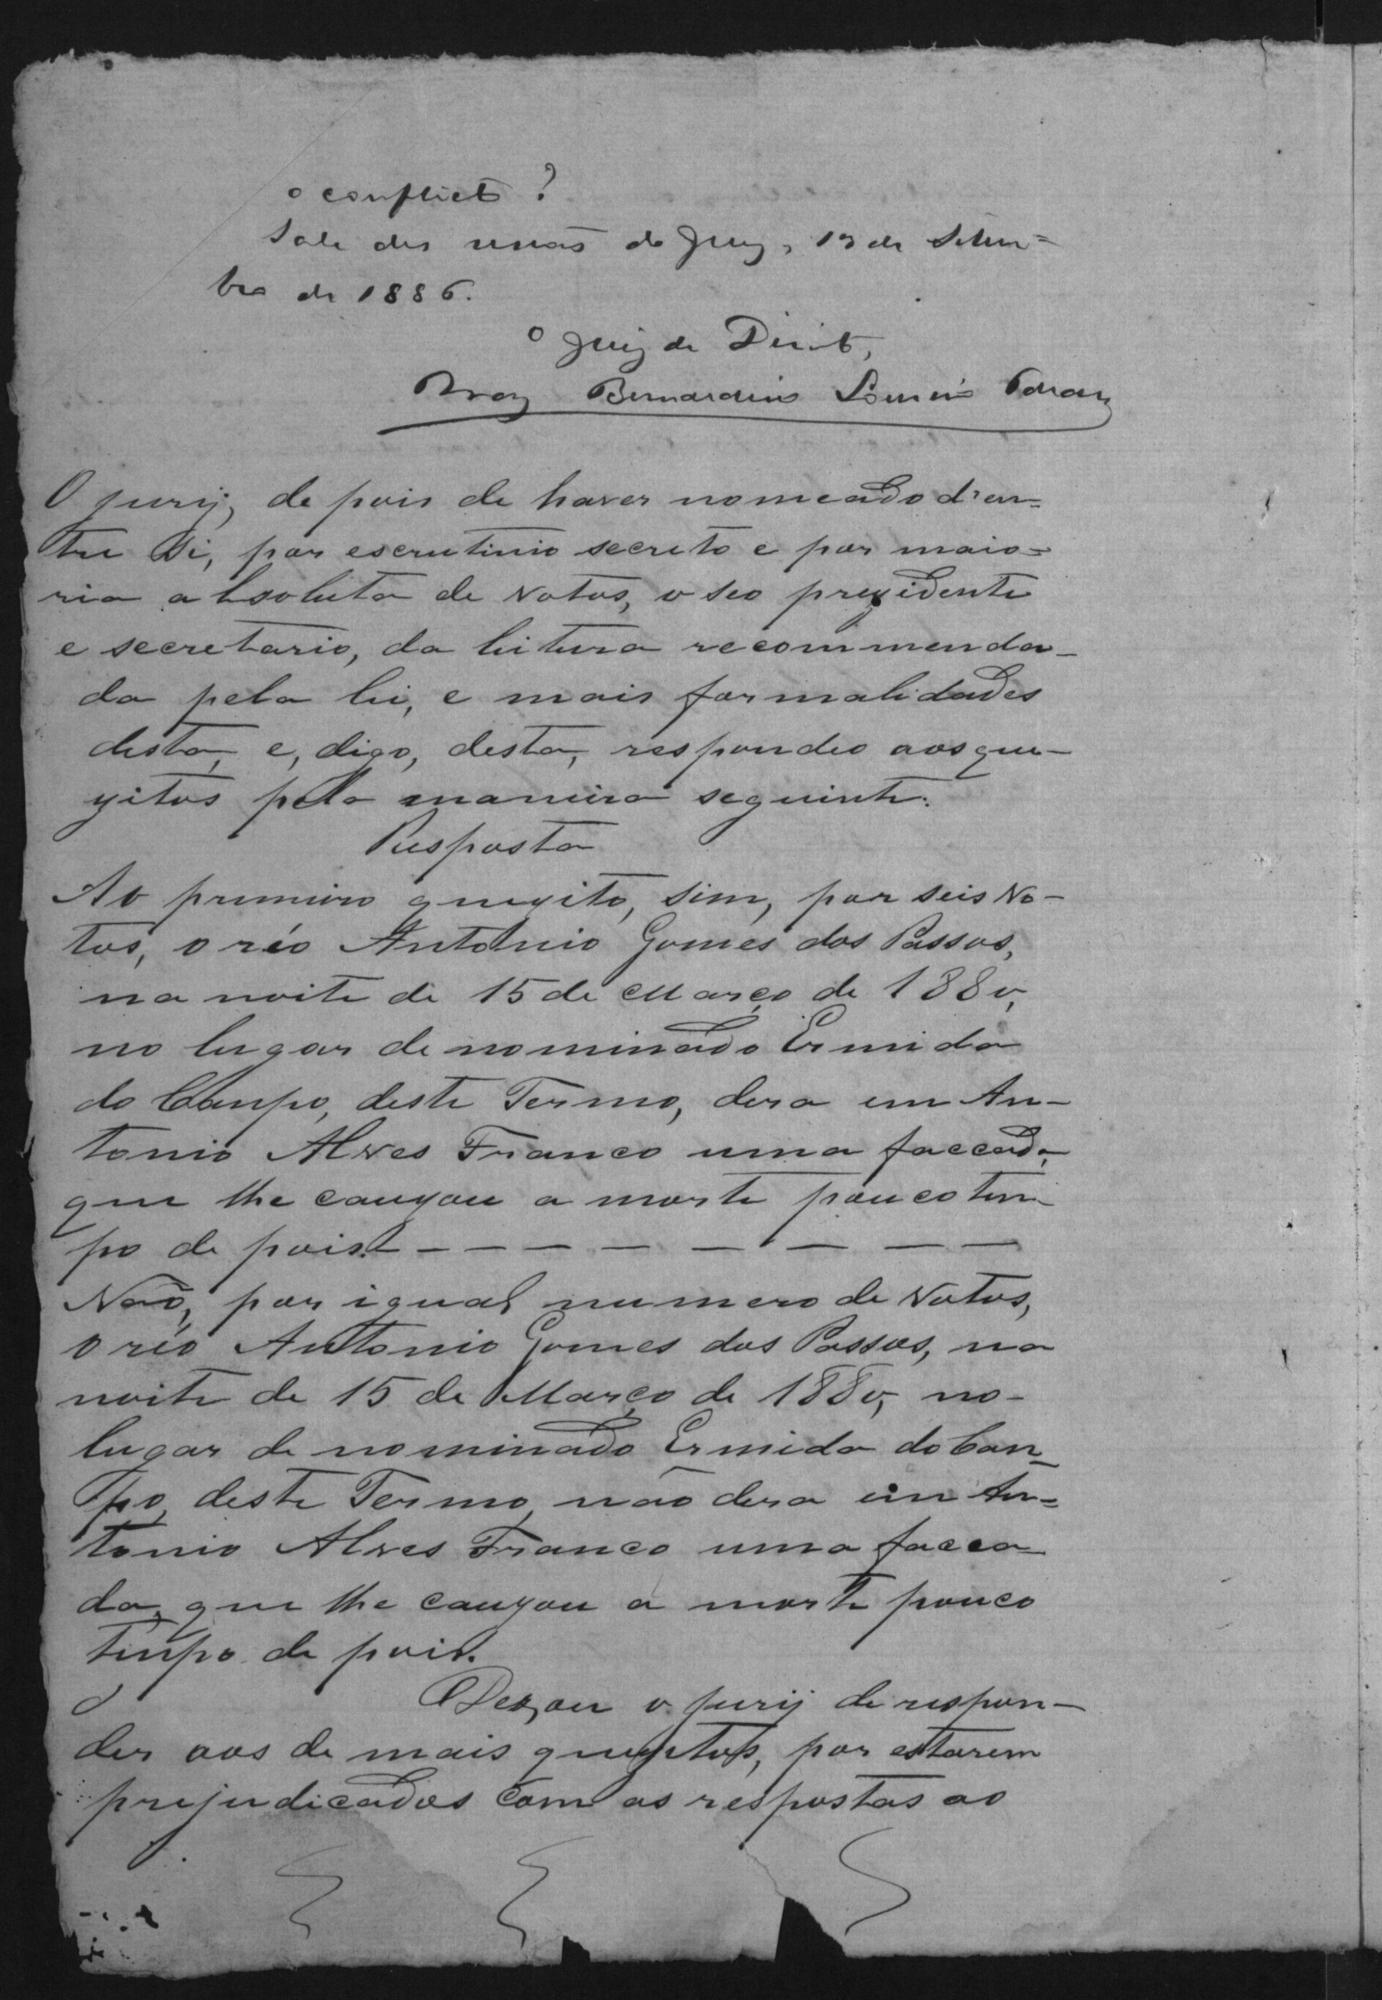 o conflicto?
Sala das sessões do Jury, 13 de Setem=
bro de 1886.
O Juiz de Direito,
Braz Bernardino Loureiro
O jury, de pois de haver nomeado d'en=
tre si, por escrutinio secreto e por maio=
ria absoluta de votos, o seo prezidente
e secretario, da leitura recommenda-
da pela lei, e mais formalidades
desta, e, digo, desta, respondeo aos que-
zitos pela maneira seguinte:
Resposta
Ao primeiro quezito, sim, por seis vo-
tos, o réo Antonio Gomes dos Passos,
na noite de 15 de Março de 1880,
no lugar denominado Ermida
do Campo, deste Termo, dera em An-
tonio Alves Franco uma faccada,
que lhe cauzou a morte pouco tem
po de pois.
Não, por igual numero de votos,
o réo Antonio Gomes dos Passos, na
noite de 15 de Março de 1880, no-
lugar de nominado Ermida do Cam-
po, deste Termo, não dera em An=
tonio Alves Franco uma facca
da, que lhe cauzou a morte pouco
tempo de pois.
Deixou o jury de respon-
der aos de mais quezitos, por estarem
prejudicados com as respostas ao